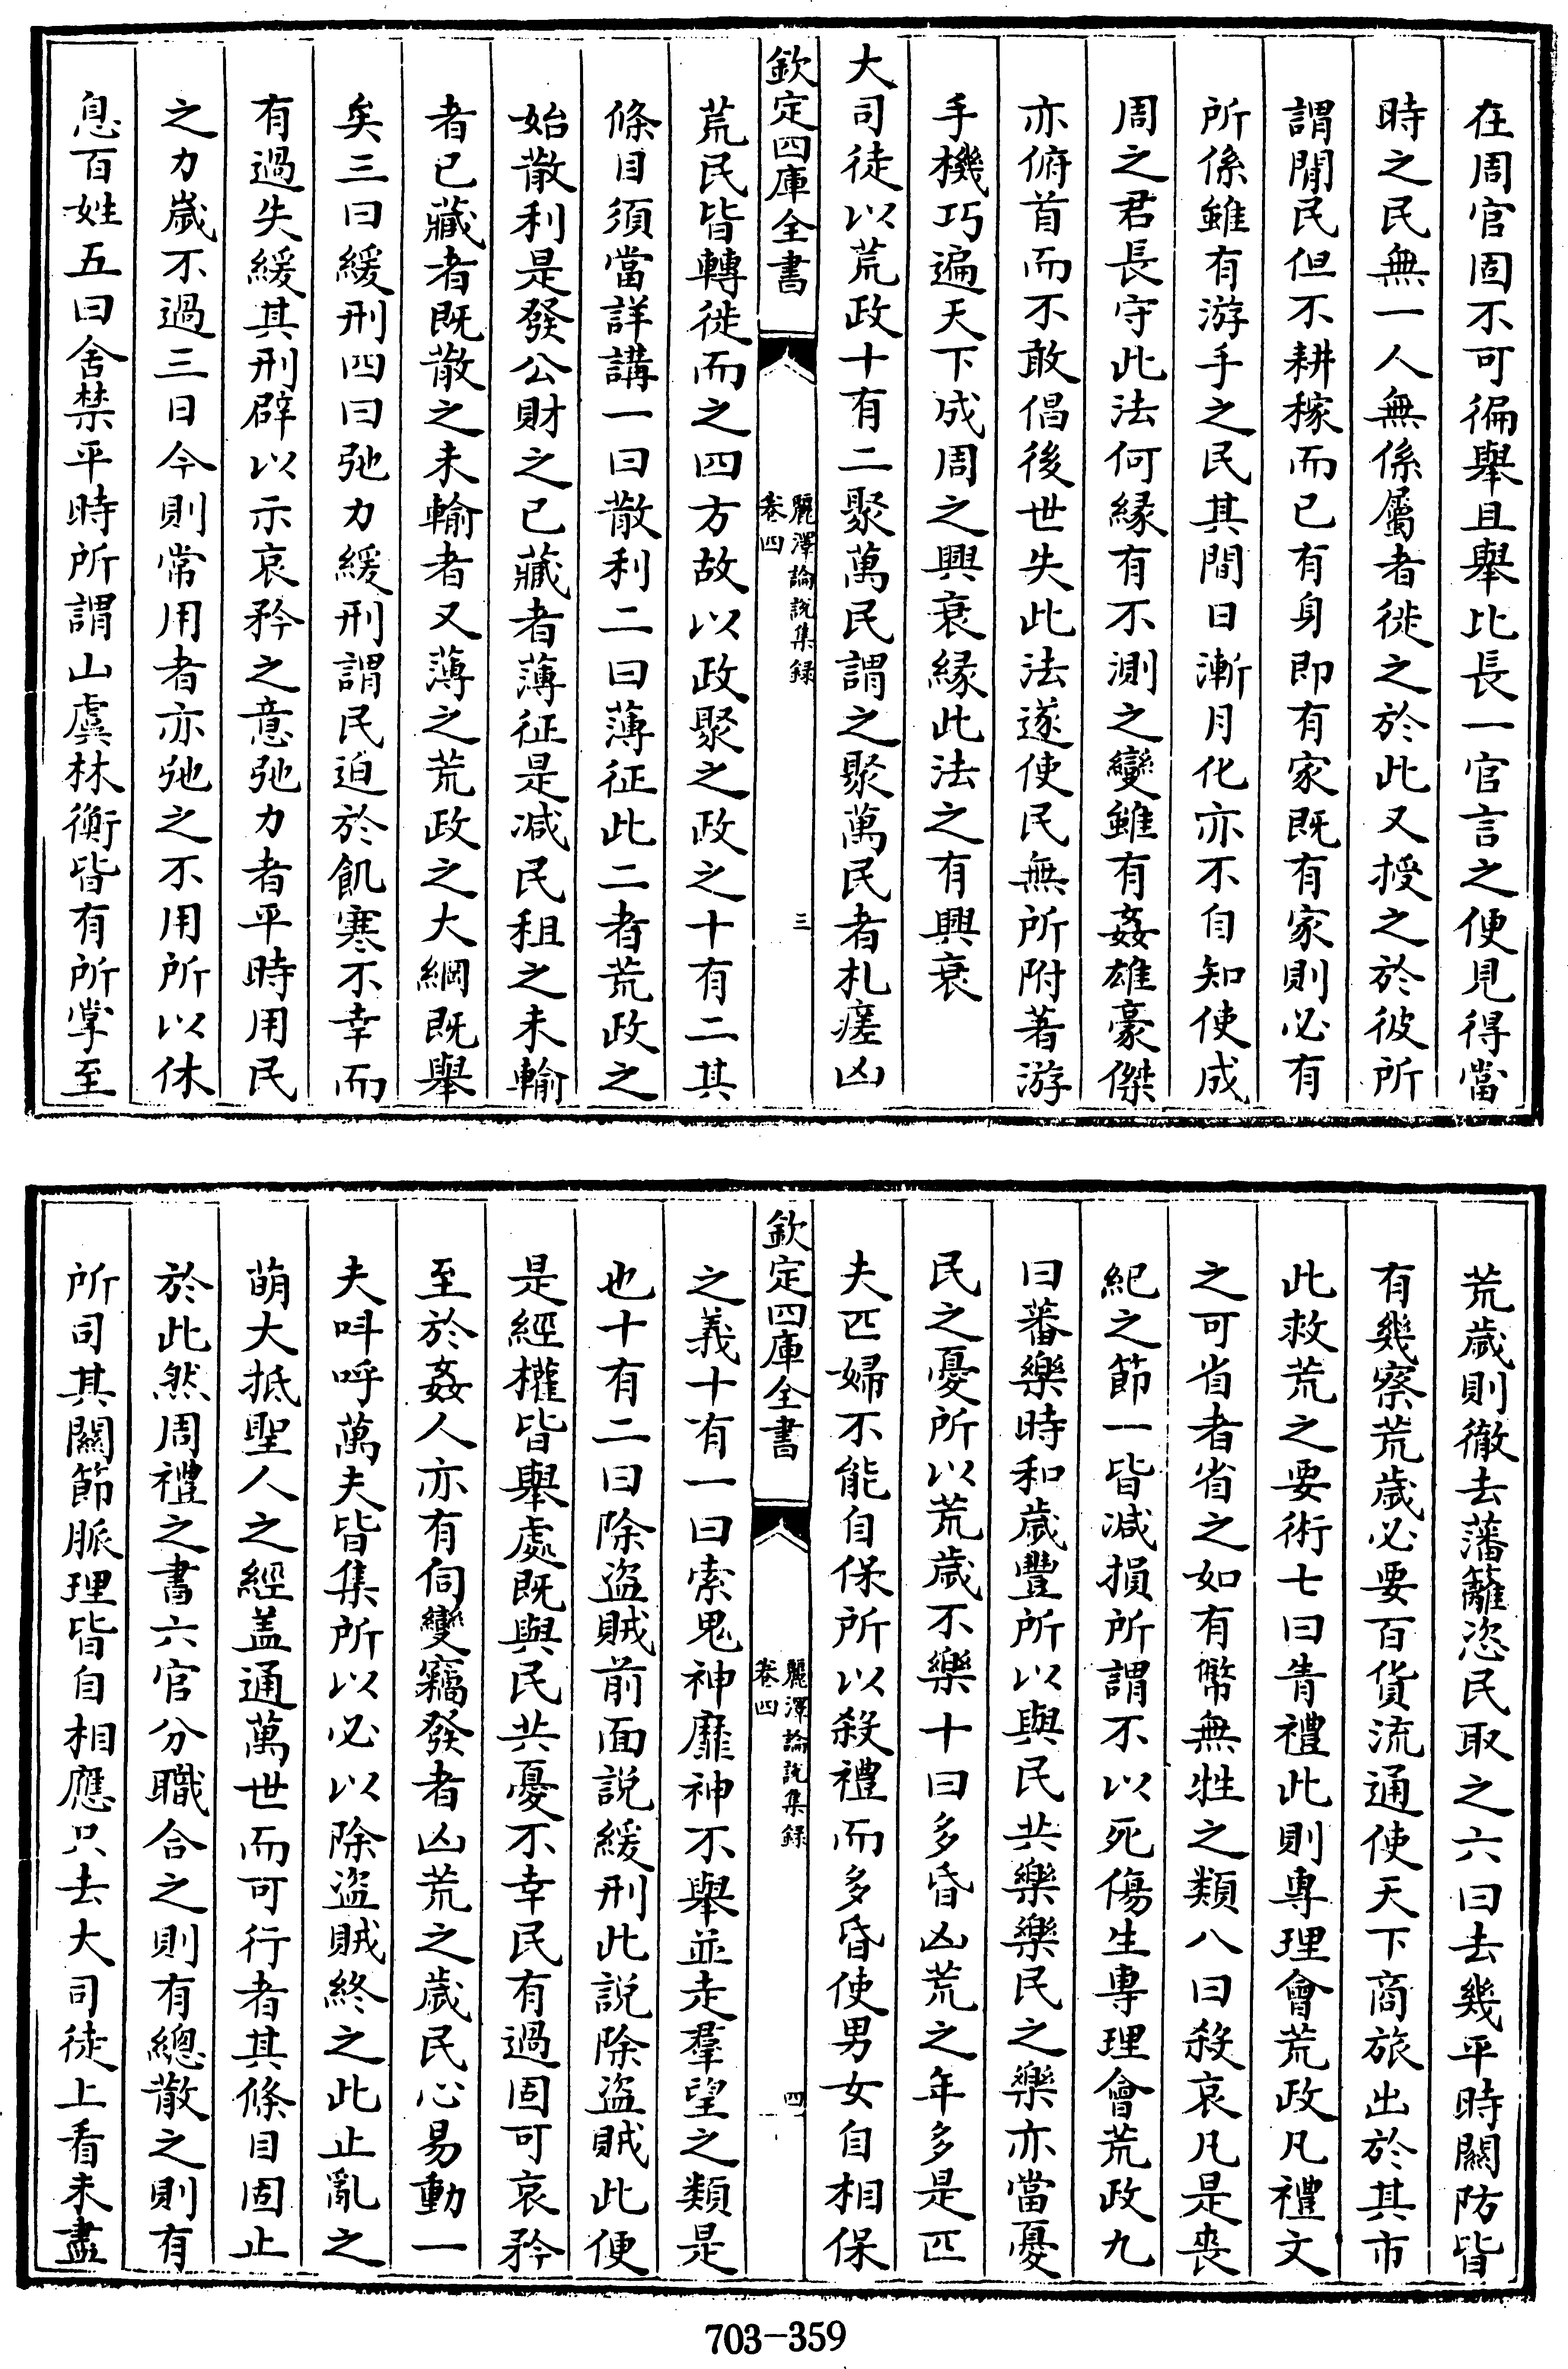 在周官固不可徧舉且舉比長一官言之便見得當
時之民無一人無係屬者徙之於此又授之於彼所
謂閒民但不耕稼而已有身即有家既有家則必有
所係雖有游手之民其間日漸月化亦不自知使成
周之君長守此法何緣有不測之變雖有姦雄豪傑
亦俯首而不敢倡後世失此法遂使民無所附著游
手機巧遍天下成周之興衰緣此法之有興衰
大司徒以荒政十有二聚萬民謂之聚萬民者札瘥凶
欽定四庫全書
麗澤論說集録
卷四
三
荒民皆轉徙而之四方故以政聚之政之十有二其
條目須當詳講一曰散利二曰薄征此二者荒政之
始散利是發公財之已藏者薄征是減民租之未輸
者已藏者既散之未輸者又薄之荒政之大綱既舉
矣三曰緩刑四曰弛力緩刑謂民迫於飢寒不幸而
有過失緩其刑辟以示哀矜之意弛力者平時用民
之力歲不過三日今則常用者亦弛之不用所以休
息百姓五曰舍禁平時所謂山虞林衡皆有所掌至
荒歲則徹去藩籬恣民取之六曰去幾平時關防皆
有幾察荒歲必要百貨流通使天下商旅出於其市
此救荒之要術七曰眚禮此則專理會荒政凡禮文
之可省者省之如有幣無牲之類八曰殺哀凡是喪
紀之節一皆減損所謂不以死傷生專理會荒政九
曰蕃樂時和歲豐所以與民共樂樂民之樂亦當憂
民之憂所以荒歲不樂十曰多昏凶荒之年多是匹
夫匹婦不能自保所以殺禮而多昏使男女自相保
欽定四庫全書
麗澤論說集録
卷四
四
之義十有一曰索鬼神靡神不舉並走羣望之類是
也十有二曰除盜賊前面說緩刑此說除盜賊此便
是經權皆舉處既與民共憂不幸民有過固可哀矜
至於姦人亦有伺變竊發者凶荒之歲民心易動一
夫呌呼萬夫皆集所以必以除盜賊終之此止亂之
萌大抵聖人之經盖通萬世而可行者其條目固止
於此然周禮之書六官分職合之則有總散之則有
所司其關節脈理皆自相應只去大司徒上看未盡
703-359